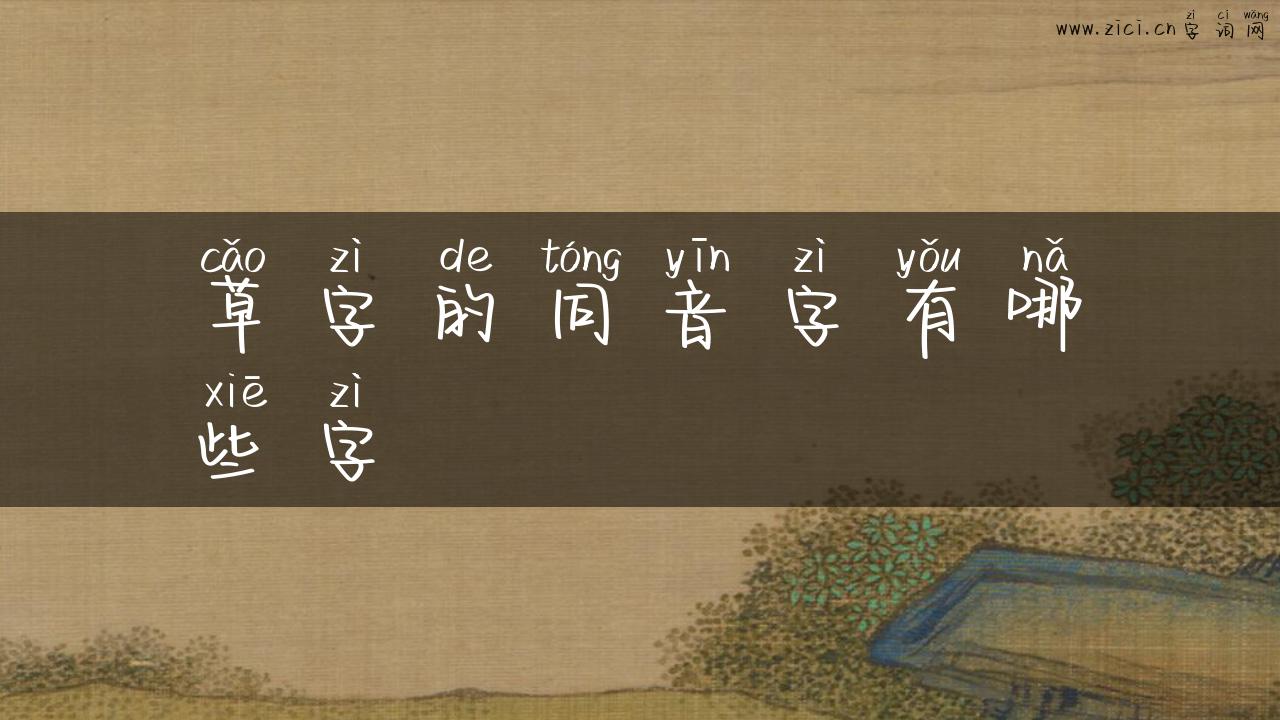 zì cí wǎng
www.zici.cn字词网
cǎo zì de tóng yīn zì yǒu nǎ
草字的同音字有哪
xiē zì
些字